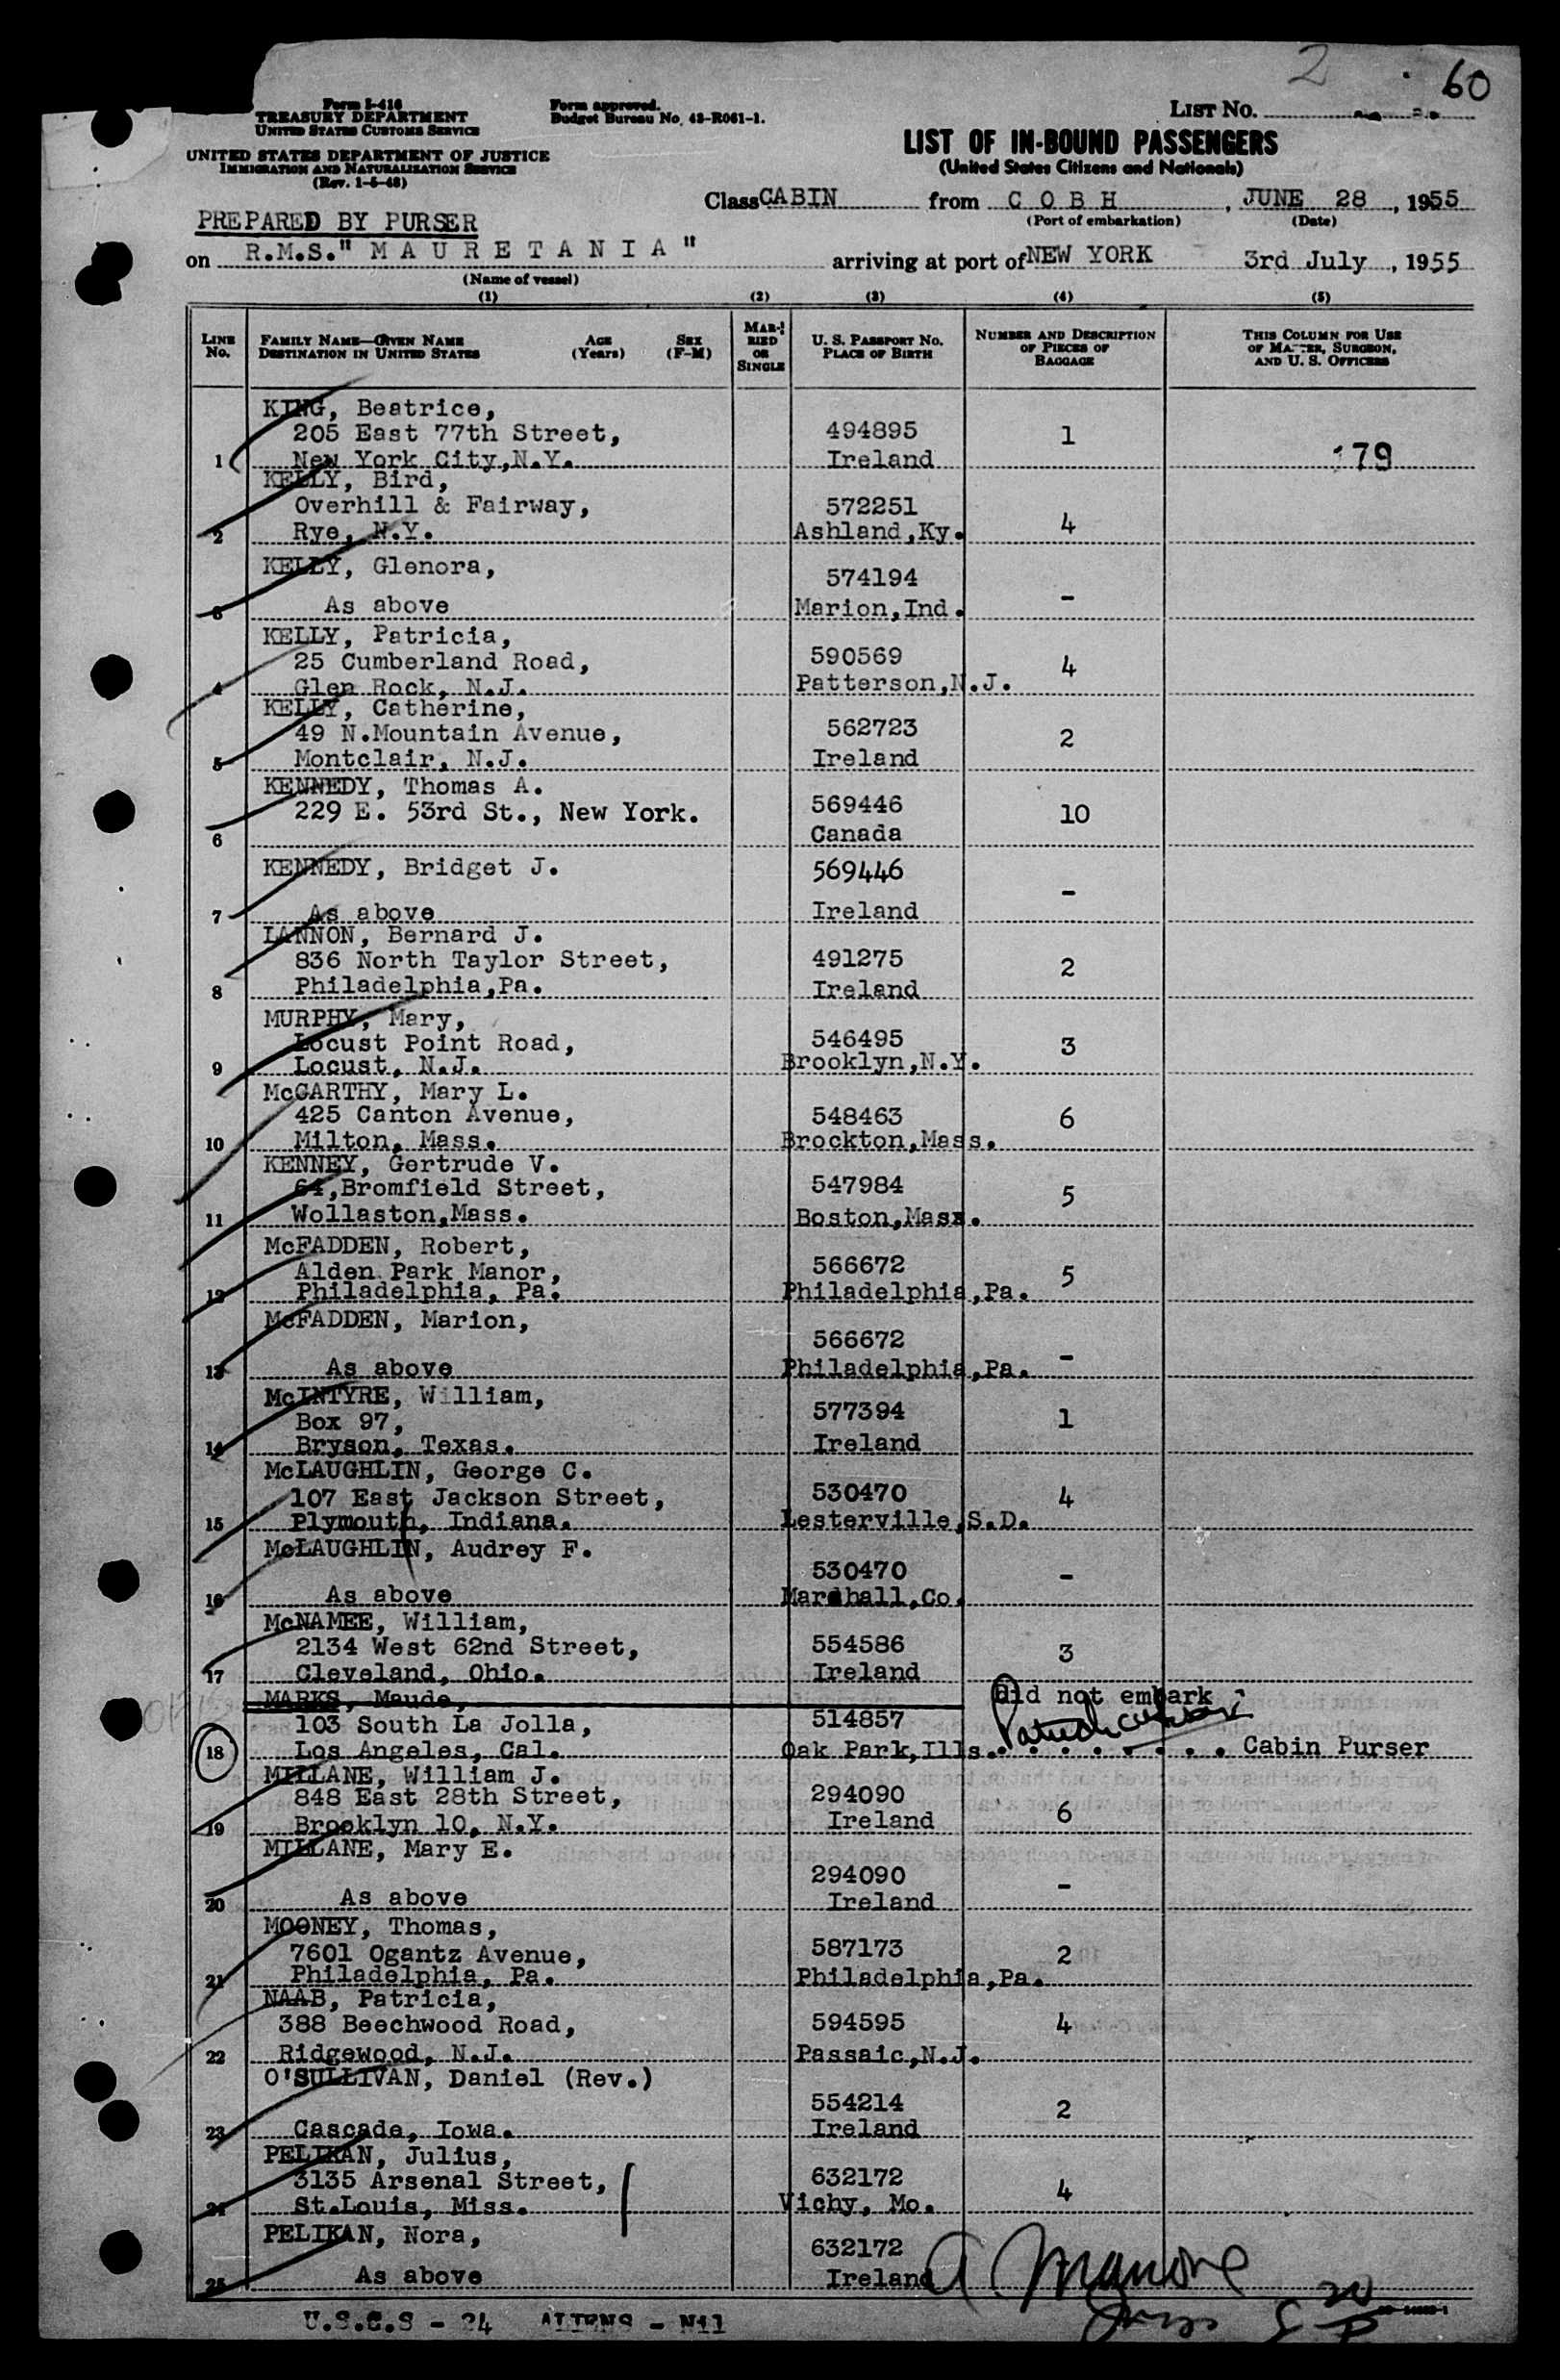 2 60
Form I-416
TREASURY DEPARTMENT
UNITED STATES CUSTOMS SERVICE
Form approved.
Budget Bureau No. 43-R061-1.
LIST NO.
UNITED STATES DEPARTMENT OF JUSTICE
IMMIGRATION AND NATURALIZATION SERVICE
(Rev. 1-5-48)
LIST OF IN-BOUND PASSENGERS
(United States Citizens and Nationals)
Class CABIN from C O B H, JUNE 28, 1955
(Port of embarkation) (Date)
PREPARED BY PURSER
on R.M.S." M A U R E T A N I A " arriving at port of NEW YORK 3rd July, 1955
(Name of vessel)
(1) (2) (3) (4) (5)
LINE No. FAMILY NAME—GIVEN NAME DESTINATION IN UNITED STATES AGE (Years) SEX (F-M) MARRIED OR SINGLE U. S. PASSPORT NO. PLACE OF BIRTH NUMBER AND DESCRIPTION OF PIECES OF BAGGAGE THIS COLUMN FOR USE OF MASTER, SURGEON, AND U. S. OFFICERS
KING, Beatrice,
205 East 77th Street, 494895 1
1 New York City,N.Y. Ireland 179
KELLY, Bird,
Overhill & Fairway, 572251
2 Rye, N.Y. Ashland,Ky. 4
KELLY, Glenora, 574194
3 As above Marion,Ind. -
KELLY, Patricia,
25 Cumberland Road, 590569 4
4 Glen Rock, N.J. Patterson,N.J.
KELLY, Catherine,
49 N.Mountain Avenue, 562723 2
5 Montclair, N.J. Ireland
KENNEDY, Thomas A.
229 E. 53rd St., New York. 569446 10
6 Canada
KENNEDY, Bridget J. 569446 -
7 As above Ireland
LANNON, Bernard J.
836 North Taylor Street, 491275 2
8 Philadelphia,Pa. Ireland
MURPHY, Mary,
Locust Point Road, 546495 3
9 Locust, N.J. Brooklyn,N.Y.
McCARTHY, Mary L.
425 Canton Avenue, 548463 6
10 Milton, Mass. Brockton,Mass.
KENNEY, Gertrude V.
64,Bromfield Street, 547984 5
11 Wollaston,Mass. Boston,Mass.
McFADDEN, Robert,
Alden Park Manor, 566672 5
12 Philadelphia, Pa. Philadelphia,Pa.
McFADDEN, Marion, 566672
13 As above Philadelphia,Pa. -
McINTYRE, William,
Box 97, 577394 1
14 Bryson, Texas. Ireland
McLAUGHLIN, George C.
107 East Jackson Street, 530470 4
15 Plymouth, Indiana. Lesterville,S.D.
McLAUGHLIN, Audrey F. 530470 -
16 As above Marshall,Co.
McNAMEE, William,
2134 West 62nd Street, 554586 3
17 Cleveland, Ohio. Ireland
MARKS, Maude, Did not embark
103 South La Jolla, 514857
18 Los Angeles, Cal. Oak Park,Ills. . . . . . . . Cabin Purser
MILLANE, William J.
848 East 28th Street, 294090 6
19 Brooklyn 10, N.Y. Ireland
MILLANE, Mary E. 294090 -
20 As above Ireland
MOONEY, Thomas,
7601 Ogantz Avenue, 587173 2
21 Philadelphia, Pa. Philadelphia,Pa.
NAAB, Patricia,
388 Beechwood Road, 594595 4
22 Ridgewood, N.J. Passaic,N.J.
O'SULLIVAN, Daniel (Rev.) 554214 2
23 Cascade, Iowa. Ireland
PELIKAN, Julius,
3135 Arsenal Street, 632172 4
24 St.Louis, Miss. Vichy, Mo.
PELIKAN, Nora, 632172
25 As above Ireland
U.S.C.S - 24 ALIENS - Nil